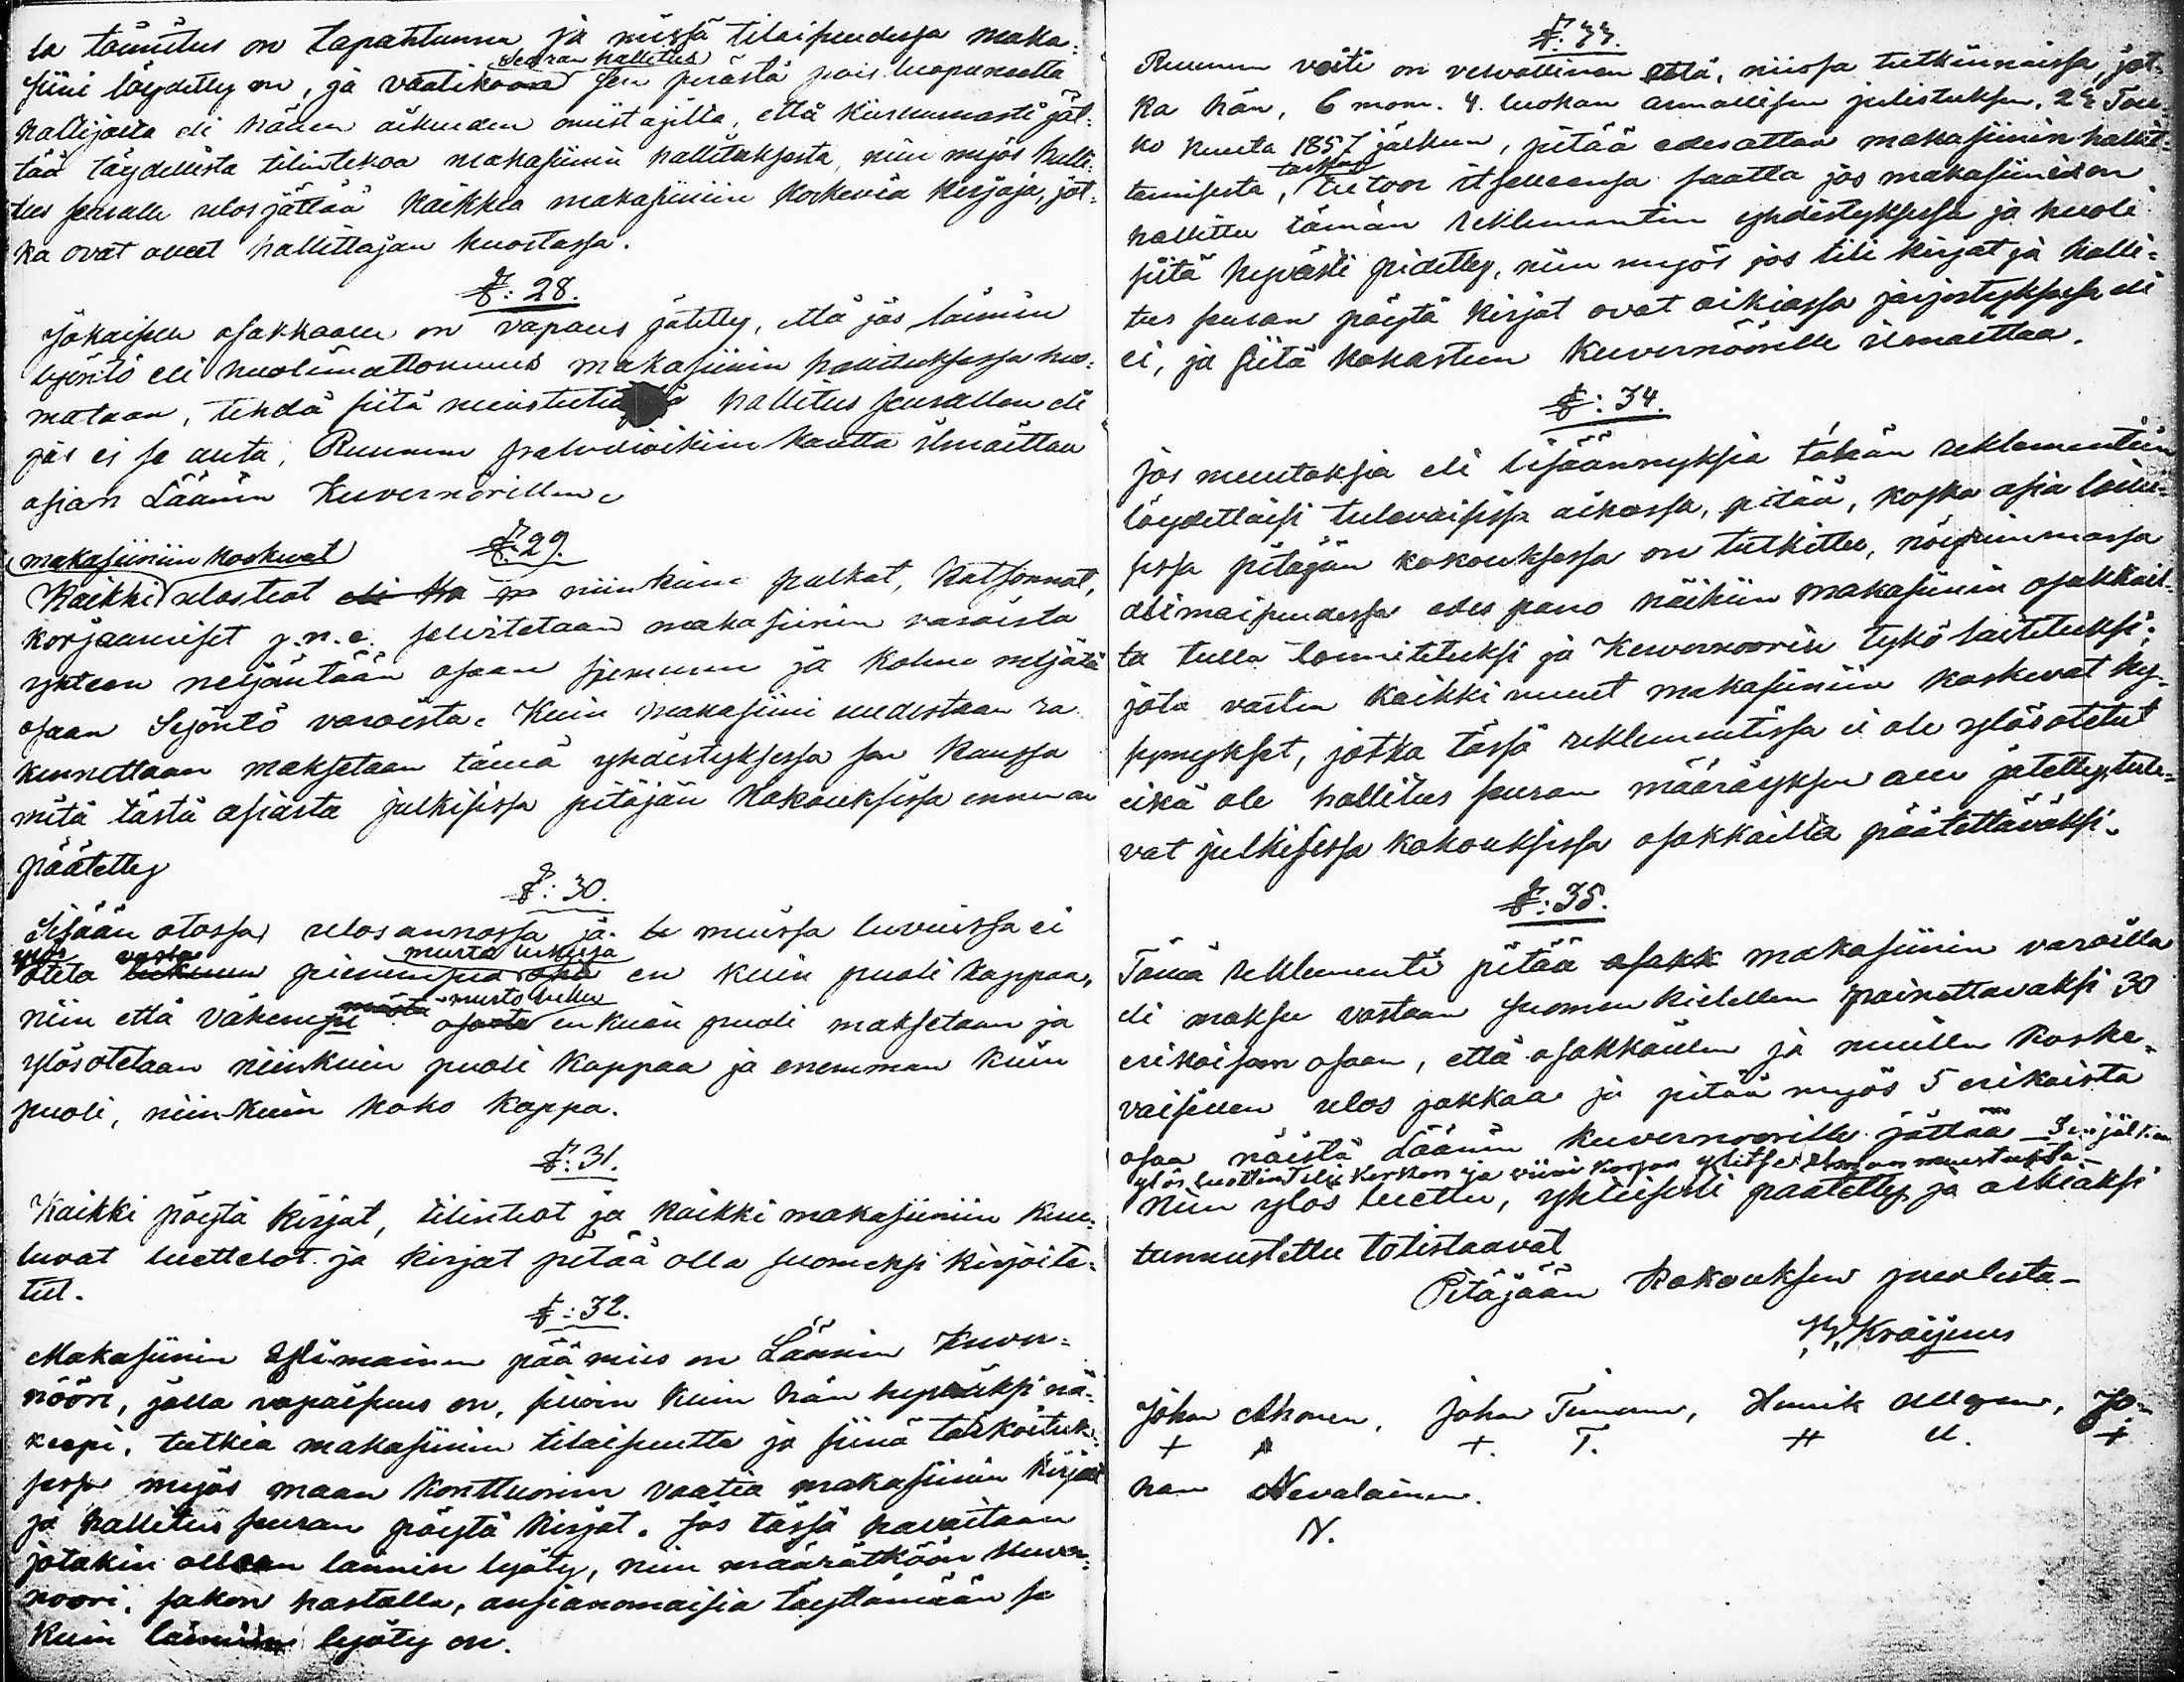 la toimitus on tapahtunna ja missä tilaisuudessa maka-
siini löydetty on, ja vaatikoon seuran hallitus sen perästä pois luopuneelta
hallijalta eli hänen oikeuden omistajilta, että kiiruumasti jät-
tää täydellistä tilintekoa makasiinin hallituksesta, niin myös halli-
tus seuralle ulos jättää kaikkia makasiiniin koskevia kirjoja, jot-
ka ovat olleet hallittajan huostassa.
§: 28.
Jokaiselle osakkaalle on vapaus jätetty, että jos laimin
lyöntö eli huolimattomuus makasiinin hallituksessa huo-
mataan, tehdä siitä muistutu hallitus seurallen eli
jos ei se auta, Ruunun palvelioikiin kautta ilmoittaa
asian Läänin Kuvernörillen.
§: 29.
Kaikki makasiiniin koskevat ulosteot eli niinkuin palkat, katsonnat,
korjaamiset j.n.e. selvitetaan makasiinin varoista
yhteen neljäntään osaan siemenen ja kolme neljätä
osaan Syöntö varoista. Kuin makasiini uudestaan ra
kennettaan maksetaan tämä yhdistyksessä sen kanssa
mitä tästä asiasta julkisissa pitäjän kokouksissa ennen on
päätetty
§: 30.
Sisään otossa, ulos annossa ja muissa luvuissa ei
ylös oteta vasta pienempiä murto lukuja en kuin puoli kappaa,
niin että vähempi murto luku enkuin puoli maksetaan ja
ylösotetaan niinkuin puoli kappaa ja enemman kuin
puoli, niinkuin koko kappa.
§: 31.
Kaikki pöytä kirjat, tilinteot ja kaikki makasiiniin kuu-
luvat luettelot ja kirjat pitää olla suomeksi kirjoite-
tut.
§: 32.
Makasiinin Ylimainen päämies on Läänin Kuver-
nööri, jolla vapaisuus on, silloin kuin hän hyväksi nä-
keepi, tutkia makasiinin tilaisuutta ja siinä tarkoituk-
sessa myös maan konttuoriin vaatia makasiinin kirjat
ja hallitus seuran pöytä kirjat. Jos tässä havaitaan
jotakin olleen laimin lyöty, niin määrätköön Kuver-
noori, sakon hastolla, ansianomaisia täyttämään se
kuin laimin lyöty on.
§. 33.
Ruunun vouti on velvollinen että, niissä tutkinnoissa, jot-
ka hän, 6 mom. 4. luokan armollisen julistuksen, 22 Tou-
ko kuuta 1857 jälkeen, pitää edesattaa makasiinin hallit-
tamisesta, tarkan tietoon itselleensa saatta jos makasiini on
hallittu tämän reklementin yhdistyksessä ja huoli
siitä hyvästi pidetty, niin myös jos tili kirjat ja halli-
tus seuran pöytä kirjat ovat oikiassa järjestyksessä eli
ei, ja siitä kohasteen Kuvernöörille ilmoittaa.
§: 34.
Jos muutoksia eli lisäännyksia tähän reklementiin
löydettäisi tulevaisissa aikoissa, pitää, koska asia laili-
sessa pitäjän kokouksessa on tutkittu, nöyrimmässä
alimaisuudessa edes pano näihin makasiinin osakkail-
ta tulla toimitetuksi ja Kuvernoorin tykö laitetuksi;
jota vasten kaikki muut makasiiniin koskevat ky-
symykset, jotka tässä reklementissa ei ole ylösotetut
eikä ole hallitus seuran määräyksen alle jätetty, tule-
vat julkisissa kokouksissa osakkailta päätettäväksi.
§: 35.
Tämä reklementi pitää osakk makasiinin varoilla
eli maksu vastaan Suomen kielellen painettavaksi 30
erikoiseen osaan, että osakkaillen ja muillen koske-
vaisillen ulos jakkaa ja pitää myös 5 erikoista
osaa näistä Läänin Kuvernoorille jättää Sen jälkeen
ylös luettiin Telje Kerkon ja viini Korjan ylitse ilman muistutusta
Niin ylös luettu, yhteisesti päätetty ja oikiaksi
tunnustettu totistaavat
Pitäjään Kokouksen puolesta
W. Kraijenus
Johan Ahonen, Johan Timonen, Henrik Ullgren, Jo-
+ A + T. # U. +
han Nevalainen.
N.